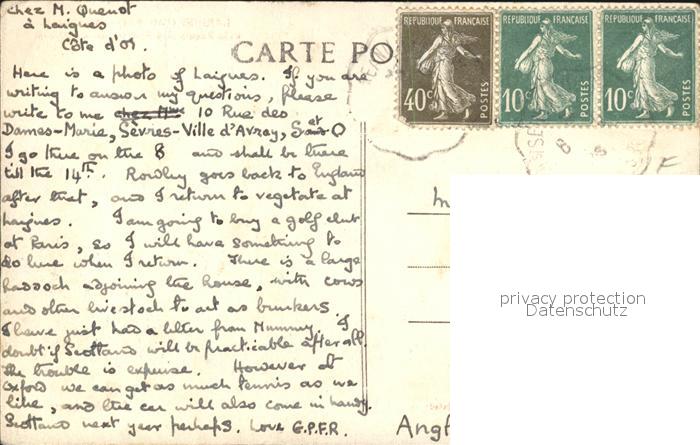 chez M. Quenot
à Laignes
Côte d'Or.
CARTE PO
REPUBLIQUE FRANÇAISE
40c
POSTES
REPUBLIQUE FRANÇAISE
10c
POSTES
REPUBLIQUE FRANÇAISE
10c
POSTES
Here is a photo of Laignes. If you are
writing to answer my questions, please
write to me chez M 10 Rue des
Dames-Marie, Sèvres-Ville d'Avray, S et O
I go there on the 8 and shall be there
till the 14th. Rowley goes back to England
after that, and I return to vegetate at
Laignes. I am going to buy a golf club
at Paris, so I will have something to
do here when I return. There is a large
paddock adjoining the house, with cows
and other livestock to act as bunkers.
I have just had a letter from Mummy. I
doubt if Scotland will be practicable after all.
The trouble is expense. However at
Oxford we can get as much tennis as we
like, and the car will also come in handy.
Scotland next year perhaps. Love G.P.F.R.
8
F
M
Angl
privacy protection
Datenschutz